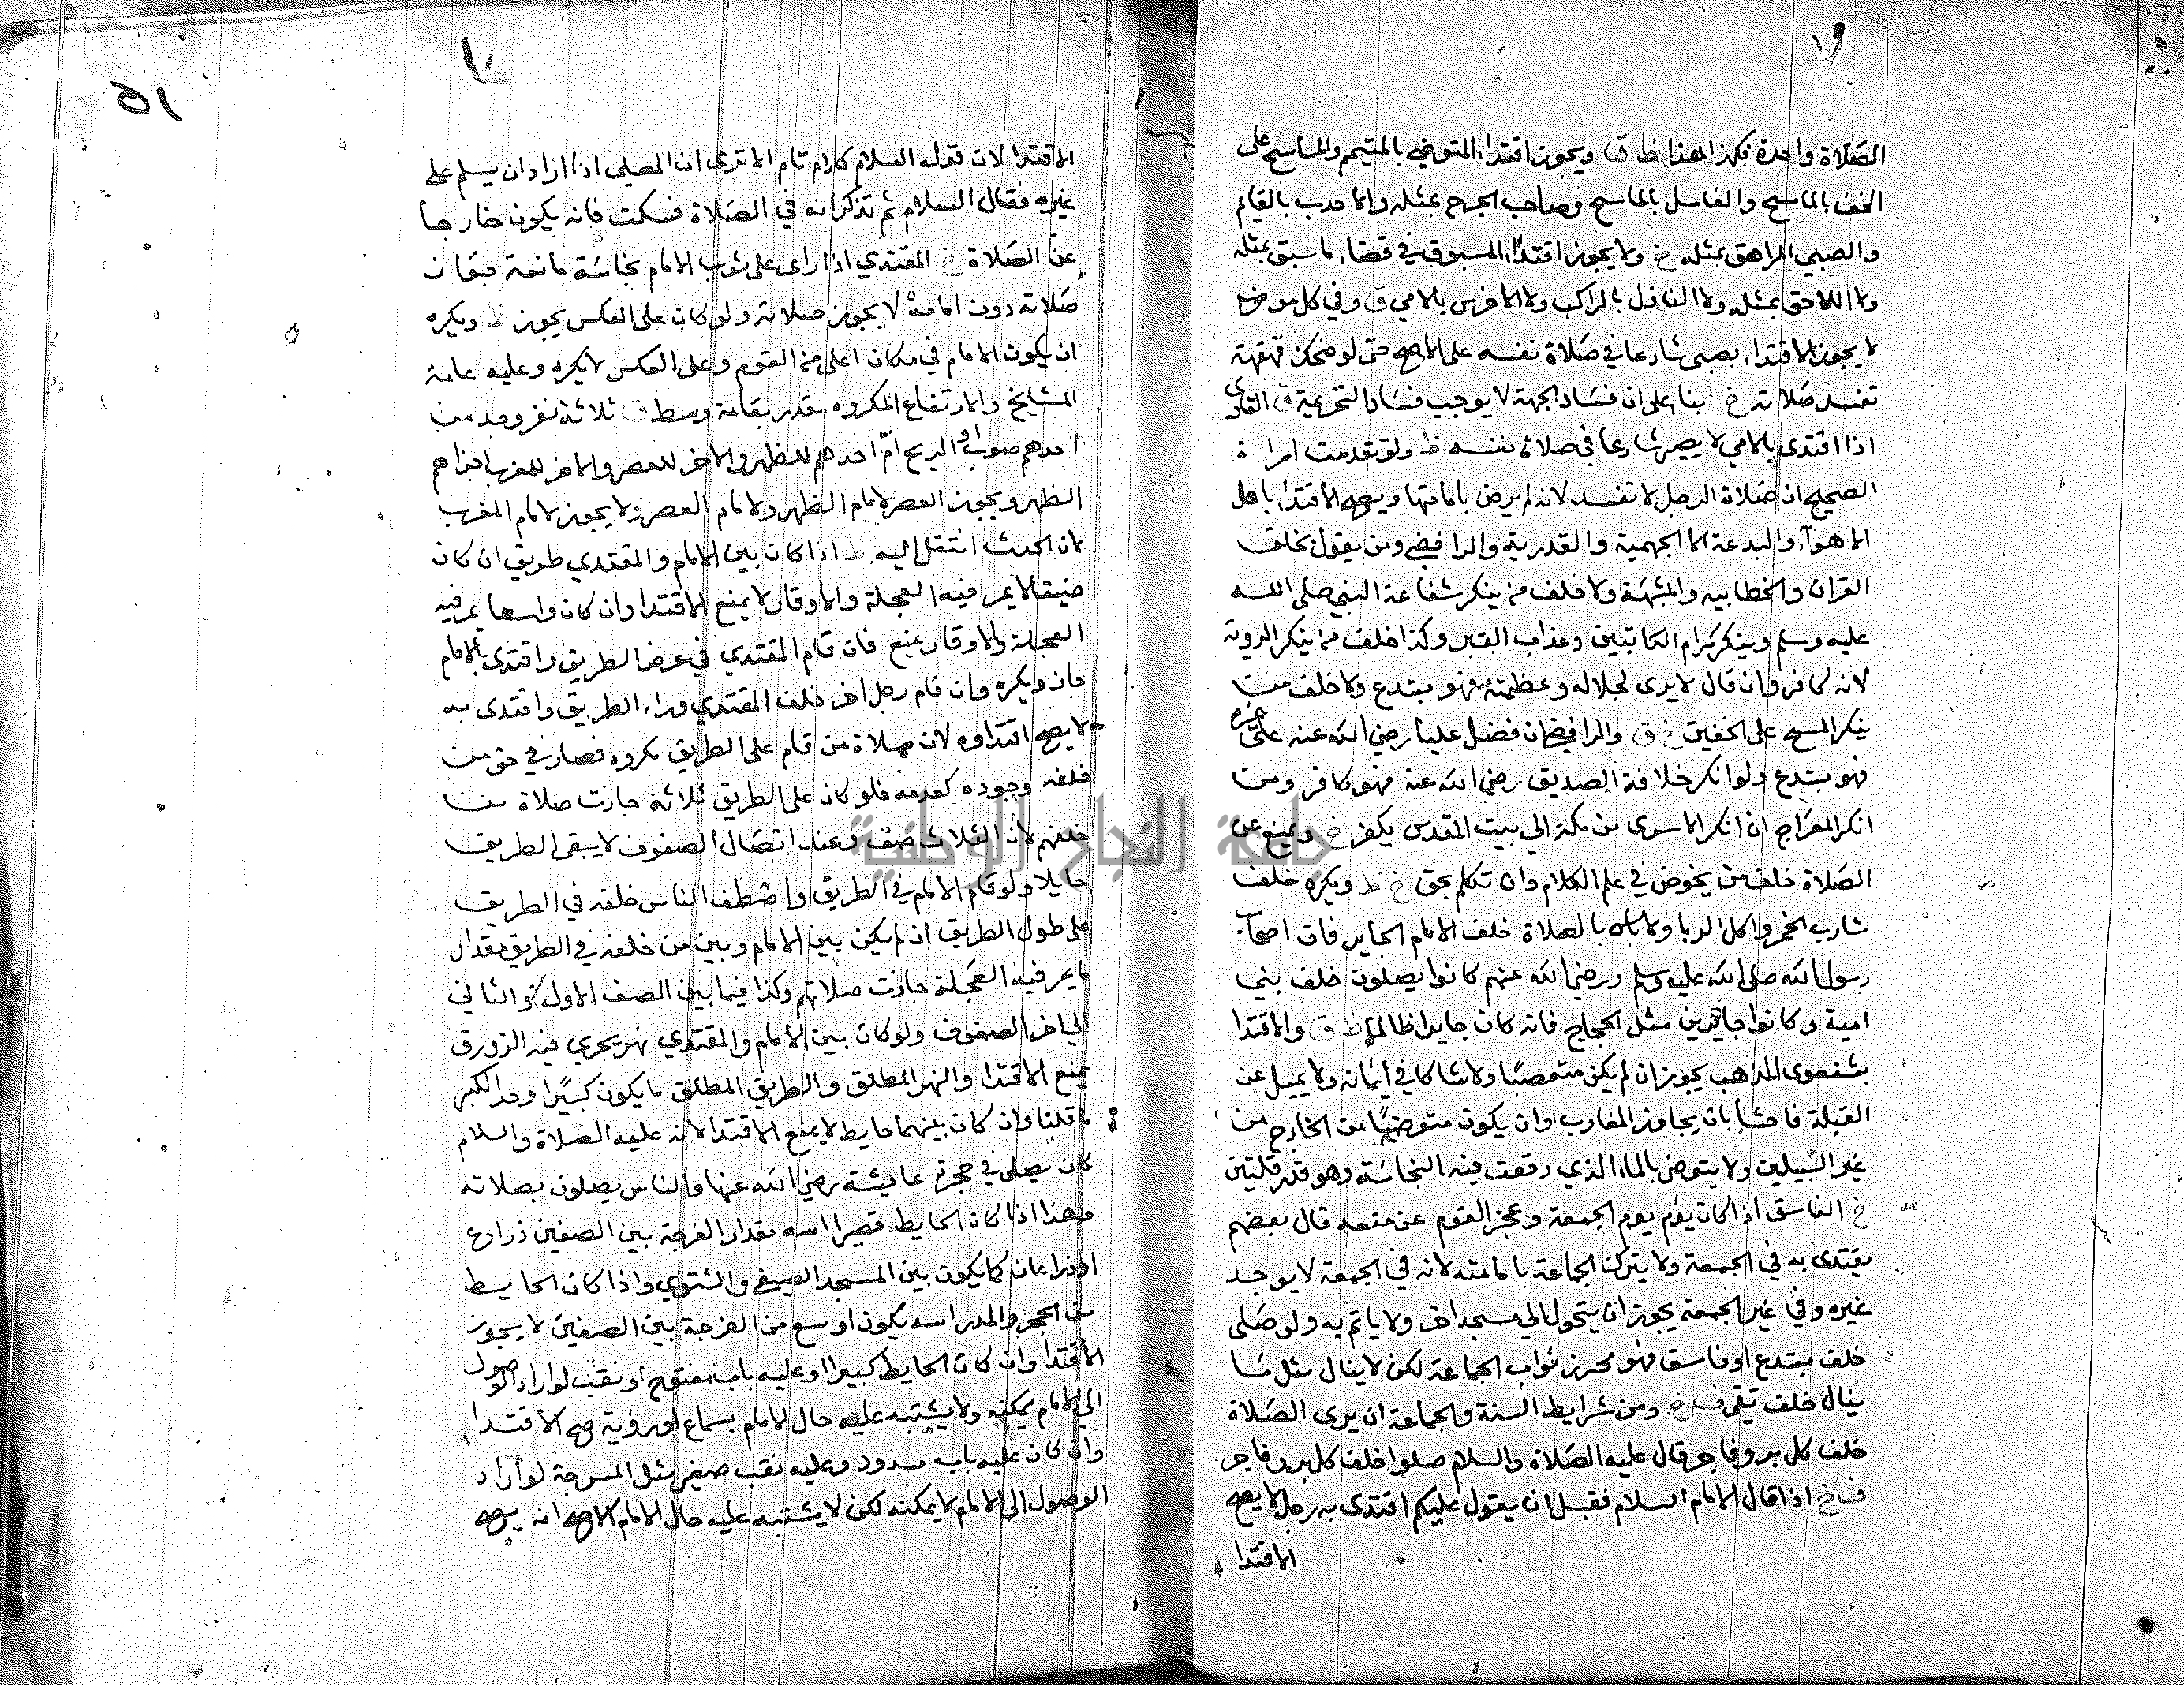 الصلاة واحدة فكهذا هذا ظ ق ويجوز اقتداء المتوضي بالمتيم والماسح على
الخف بالماسح والغاسل بالماسح وصاحب الجرح بمثله والاحدب بالقايم
والصبي المراهق بمثله خ ولا يجوز اقتداء المسبوق في قضاء ما سبق بمثله
ولا اللاحق بمثله ولا النازل بالراكب ولا الاخرس بالامي ق وفي كل موضع
لا يجوز الاقتداء يصير شارعا في صلاة نفسه على الاصح حتى لو ضحك قهقهة
تفسد صلاته خ بناء على ان فساد الجهة لا يوجب فساد التحريمة ق القاري
اذا اقتدى بالامي لا يصير شارعا في صلاة نفسه ظ ولو تقدمت امراة
الصحيح ان صلاة الرجل لا تفسد لانه لم يرض بامامتها ويصح الاقتداء باهل
الاهواء والبدعة الا الجهمية والقدرية والرافضي ومن يقول بخلق
القران والخطابيه والمشبهة ولا خلف من ينكر شفاعة النبي صلى الله
عليه وسلم وينكر كرام الكاتبين وعذاب القبر وكذا خلف من ينكر الروية
لانه كافر وان قال لا يرى لجلاله وعظمته فهو مبتدع ولا خلف من
ينكر المسح على الخفين خ ق والرافضي ان فضل عليا رضي الله عنه على غيره
فهو مبتدع ولو انكر خلافة الصديق رضي الله عنه فهو كافر ومن
انكر المعراج ان انكر الاسرى من مكة الى بيت المقدس يكفر خ ويمنع عن
الصلاة خلف من يخوض في علم الكلام وان تكلم بحق خ ظ ويكره خلف
شارب الخمر واكل الربا ولا باس بالصلاة خلف الامام الجاير فان اصحاب
رسول الله صلى الله عليه وسلم ورضي الله عنهم كانوا يصلون خلف بني
امية وكانوا جايرين مثل الحجاج فانه كان جايرا ظالما ظ ق والاقتدا
بشفعوي المذهب يجوز ان لم يكن متعصبا ولا شاكا في ايمانه ولا يميل عن
القبلة فاحشا بان يجاوز المغارب وان يكون متوضيا من الخارج من
غير السبيلين ولا يتوضى بالماء الذي وقعت فيه النجاسة وهو قدر قلتين
خ الفاسق اذا كان يؤم يوم الجمعة وعجز القوم عن منعه قال بعضهم
يقتدى به في الجمعة ولا يترك الجماعة بامامته لانه في الجمعة لا يوجد
غيره وفي غير الجمعة يجوز ان يتحول الى مسجد اخر ولا ياتم به ولو صلى
خلف مبتدع او فاسق فهو محرز ثواب الجماعة لكن لا ينال مثل ما
ينال خلف تقي ف خ ومن شرايط السنة والجماعة ان يرى الصلاة
خلف كل بر وفاجر قال عليه الصلاة والسلام صلوا خلف كل بر وفاجر
ف خ اذا قال الامام السلام فقبل ان يقول عليكم اقتدى به رجل لا يصح
الاقتدا
١٠
٥١
الاقتدا لان قوله السلام كلام تام الا ترى ان المصلي اذا اراد ان يسلم على
غيره فقال السلام ثم تذكر انه في الصلاة فسكت فانه يكون خارجا
عن الصلاة خ المقتدي اذا راى على ثوب الامام نجاسة مانعة
صلاته دون امامه لا يجوز صلاته ولو كان على العكس يجوز ظ ويكره
ان يكون الامام في مكان اعلى من القوم وعلى العكس لا يكره وعليه عامة
المشايخ والارتفاع المكروه مقدر بقامة وسط ق ثلاثة نفر وجد من
احدهم صوب او الريح ام احدهم للظهر والاخر للعصر والاخر للمغرب اجزاهم
الظهر ويجوز العصر لامام الظهر ولامام العصر ولا يجوز لامام المغرب
لان الحدث انتقل اليه ظ اذا كان بين الامام والمقتدي طريق ان كان
ضيقا لا يمر فيه العجلة والاوقار لا يمنع الاقتدا وان كان واسعا يمر فيه
العجلة والاوقار يمنع فان قام المقتدي في عرض الطريق واقتدى بالامام
جاز ويكره وان قام رجل اخر خلف المقتدي وراء الطريق واقتدى به
لا يصح اقتداوه لان صلاة من قام على الطريق مكروه فصار في حق من
خلفه وجوده كعدمه فلو كان على الطريق ثلاثة جازت صلاة من
خلفهم لان الثلاث صف وعند اتصال الصفوف لا يبقى الطريق
حايلا ولو قام الامام في الطريق واصطف الناس خلفه في الطريق
على طول الطريق ان لم يكن بين الامام وبين من خلفه في الطريق مقدار
ما يمر فيه العجلة جازت صلاتهم وكذا فيما بين الصف الاول والثاني
الى اخر الصفوف ولو كان بين الامام والمقتدي نهر يجري فيه الزورق
يمنع الاقتدا والنهر المطلق والطريق المطلق ما يكون كبيرا وحد الكبر
ما قلنا وان كان بينهما حايط لا يمنع الاقتدا لانه عليه الصلاة والسلام
كان يصلي في حجرة عايشة رضي الله عنها والناس يصلون بصلاته
وهذا اذا كان الحايط قصيرا اسه مقدار الفرجة بين الصفين ذراع
او ذراعان كما يكون بين المسجد الصيفي والشتوي واذا كان الحايط
من الحجر والمدر اسه يكون اوسع من الفرجة بين الصفين لا يجوز
الاقتدا وان كان الحايط كبيرا وعليه باب مفتوح او نقب لو اراد الوصول
الى الامام يمكنه ولا يشتبه عليه حال الامام بسماع او روية صح الاقتدا
وان كان عليه باب مسدود وعليه نقب صغير مثل المسرجة لو اراد
الوصول الى الامام لا يمكنه لكن لا يشتبه عليه حال الامام الاصح انه يصح
جامعة النجاح الوطنية